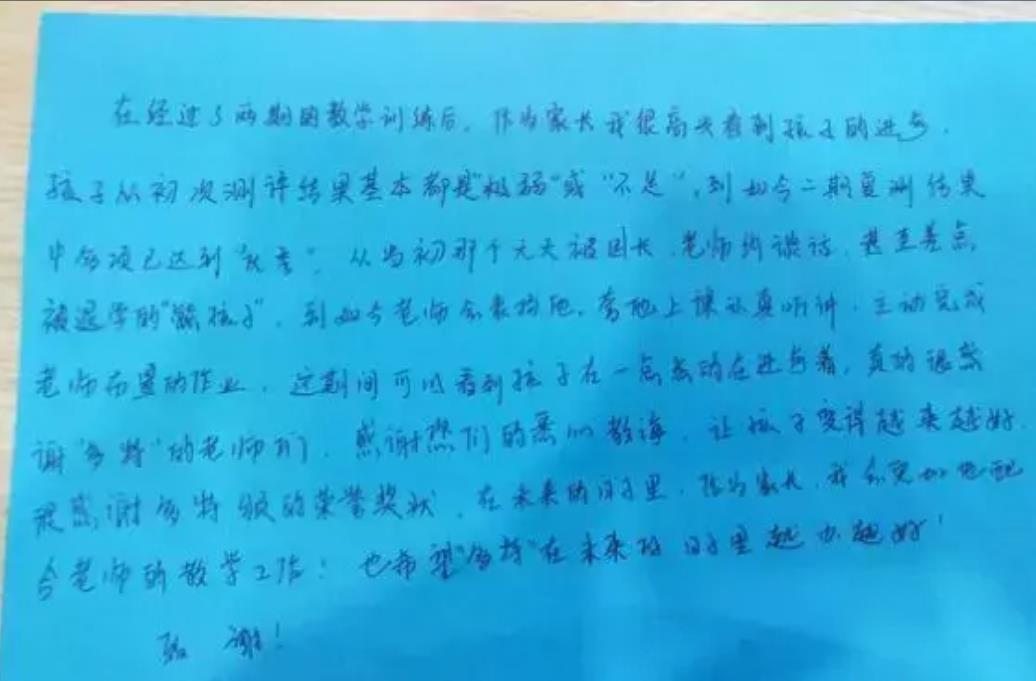 在经过了两期的教学训练后，作为家长我很高兴看到孩子的进步，
孩子从初次测评结果基本都是"极弱"或"不足"，到如今二期复测结果
中各项已达到"优秀"。从当初那个天天被因长、老师约谈话，甚至差点
被退学的"熊孩子"，到如今老师会表扬他，夸他上课认真听讲，主动完成
老师布置的作业，这期间可以看到孩子在一点点的在进步着，真的很感
谢"多特"的老师们，感谢您们的悉心教诲，让孩子变得越来越好，
很感谢多特颁的荣誉奖状，在未来的日子里，作为家长，我会更加地配
合老师的教学工作！也希望"多特"在未来的日子里越办越好！
致谢！